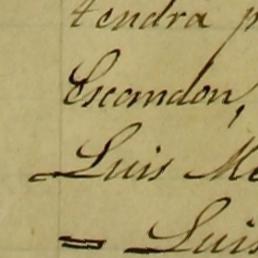 tendra p
Escandon,
Luis Me
= Luis